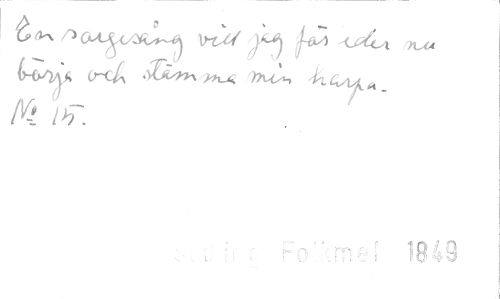 En sorgesång vill jag för eder nu
börja och stämma min harpa.
No 15.
Folkmel 1849